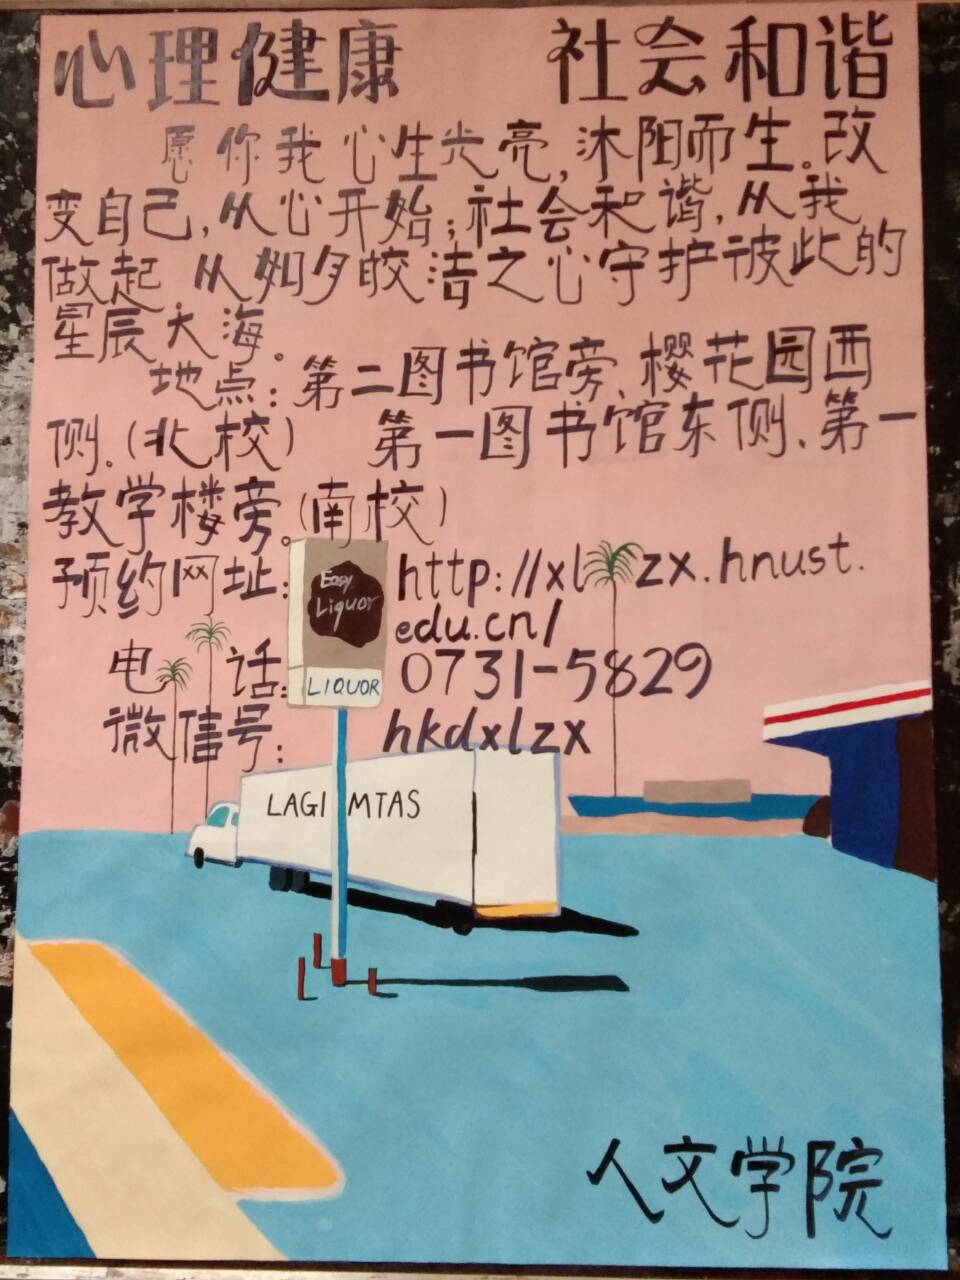 心理健康 社会和谐
愿你我心生光亮,沐阳而生。改
变自己,从心开始;社会和谐,从我
做起,从如月皎洁之心守护彼此的
星辰大海。
地点:第二图书馆旁、樱花园西
侧。(北校) 第一图书馆东侧、第一
教学楼旁。(南校)
预约网址: http://xl zx.hnust.
edu.cn/
电话: 0731-5829
微信号: hkdxlzx
Easy
Liquor
LIQUOR
LAGI MTAS
人文学院